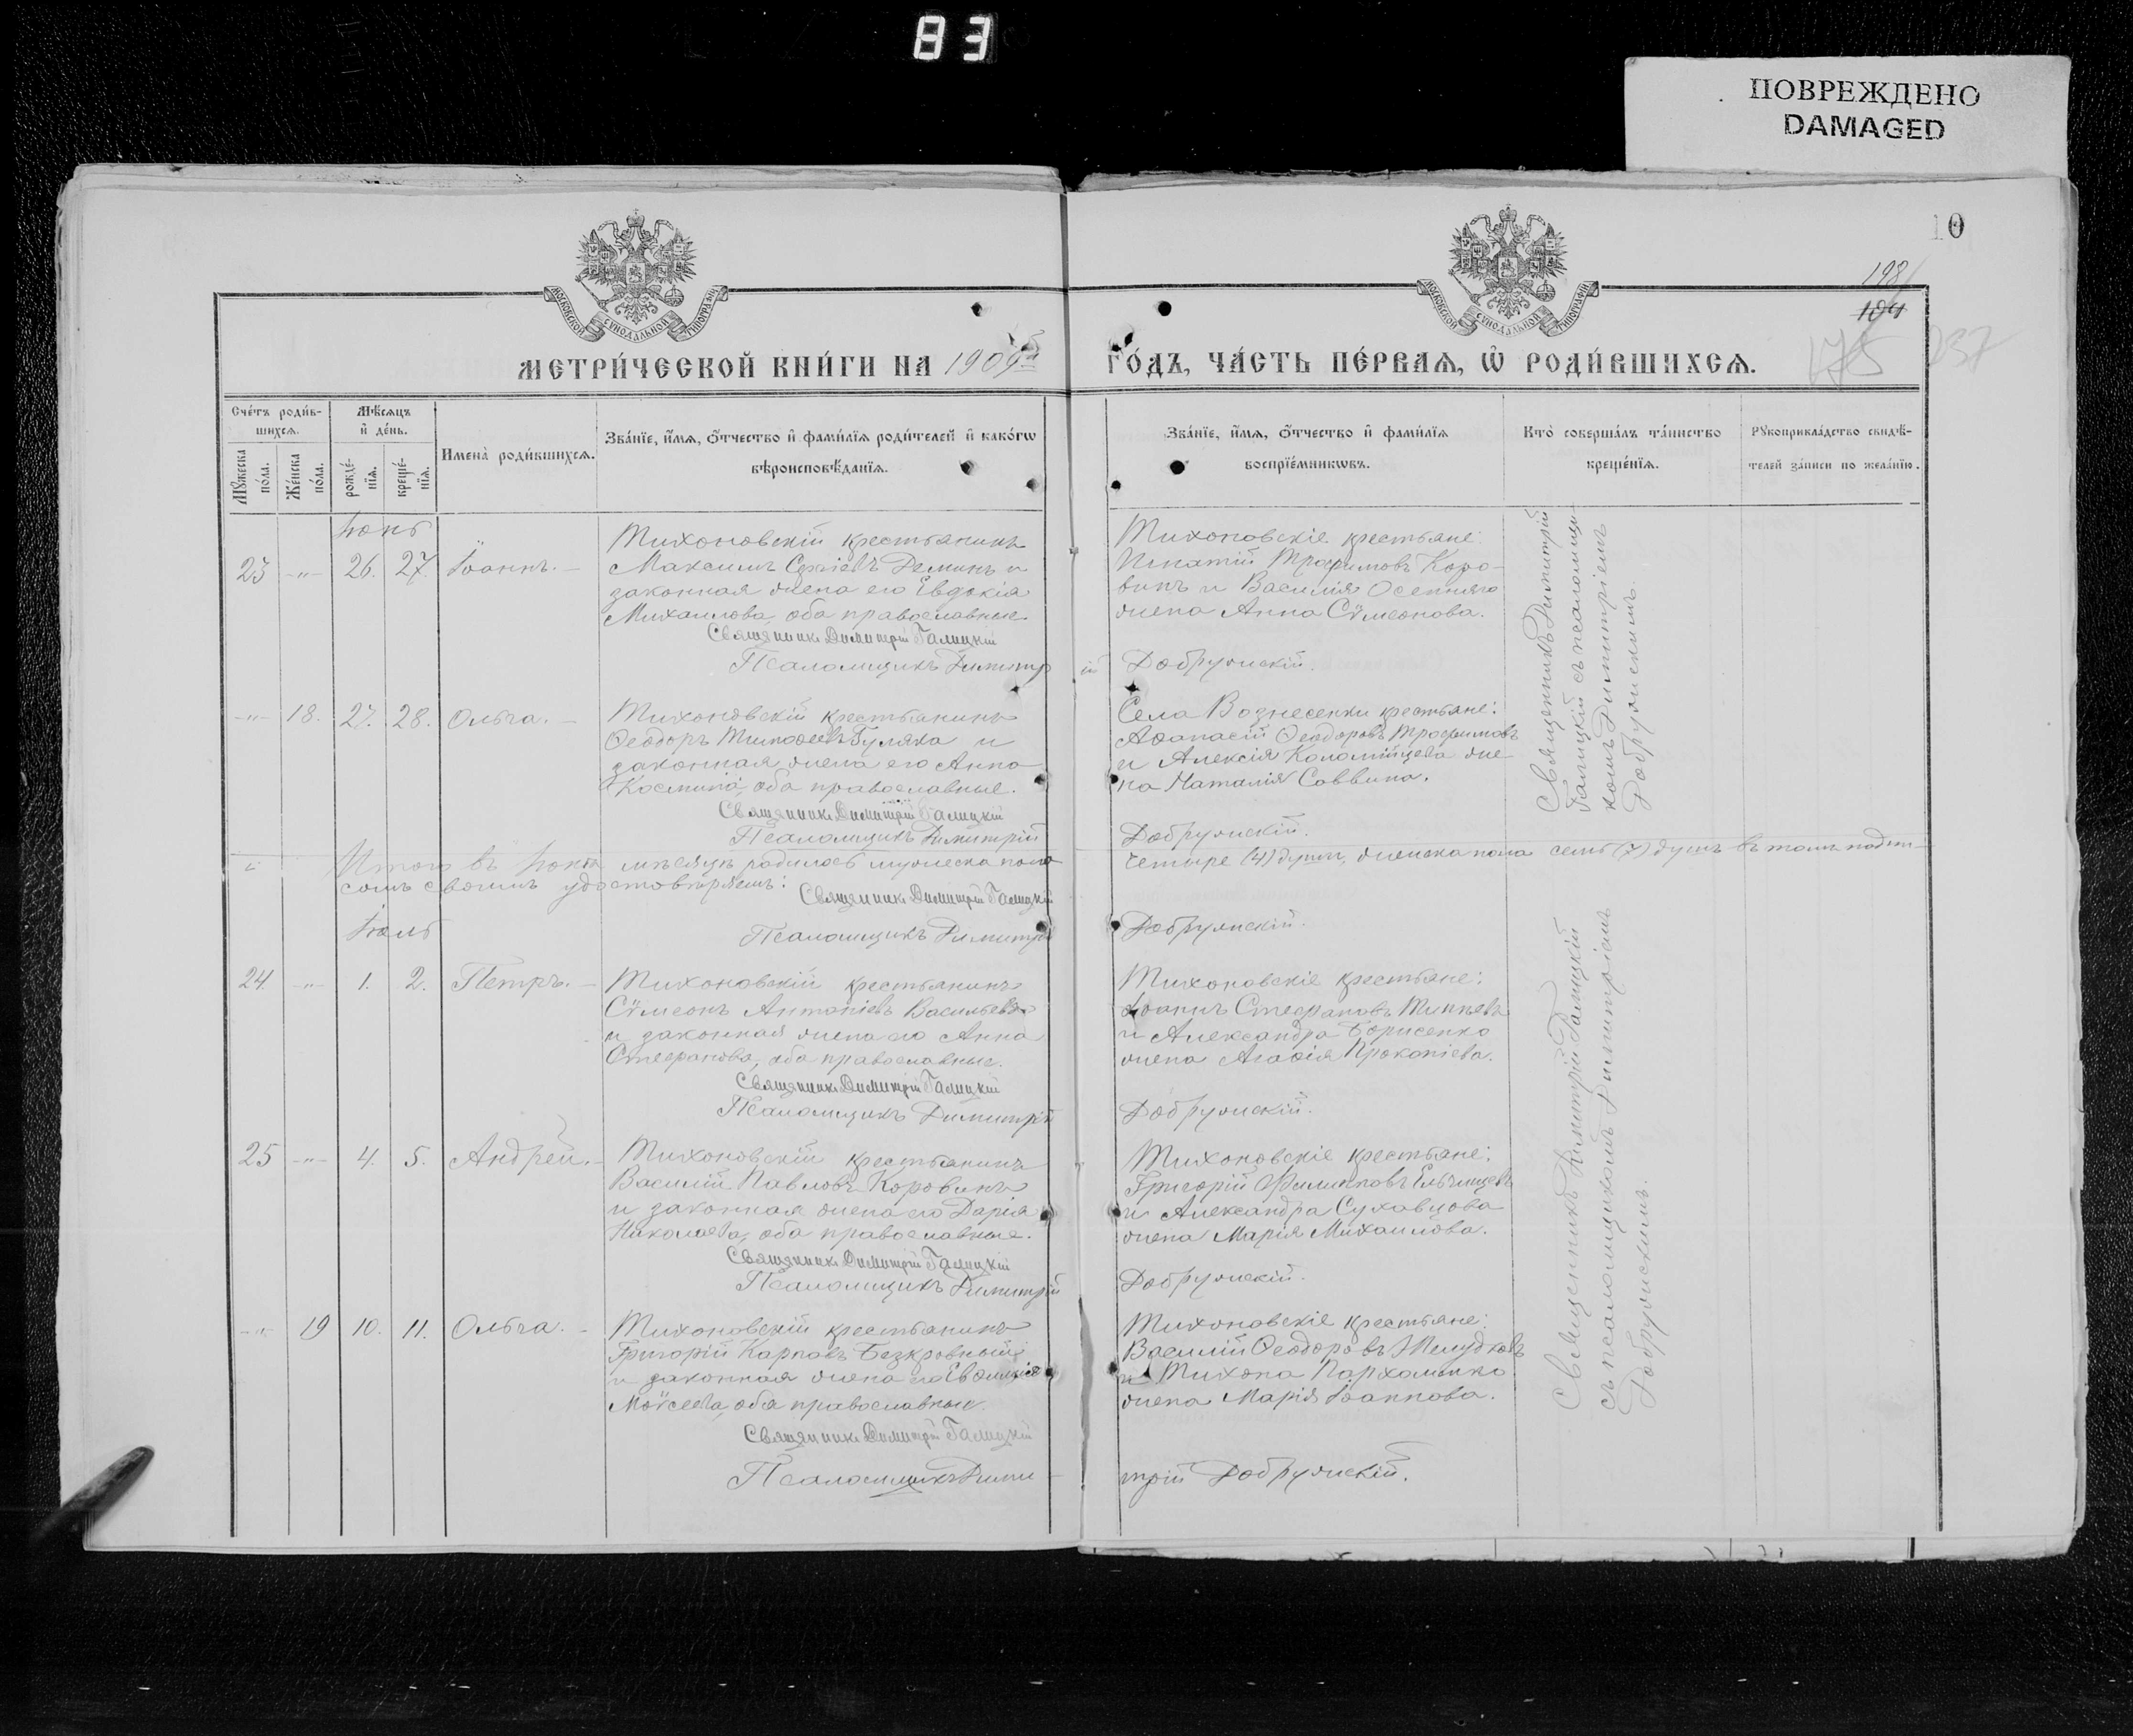 83
ПОВРЕЖДЕНО
DAMAGED
10
198
194
175
237
МОСКОВСКОЙ СУНОДАЛЬНОЙ ТИПОГРАФІИ
МОСКОВСКОЙ СУНОДАЛЬНОЙ ТИПОГРАФІИ
МЕТРИ́ЧЕСКОЙ КНИ́ГИ НА 1909й ГО́ДЪ, ЧА́СТЬ ПЕ́РВАѦ, Ѡ҆ РОДИ́ВШИХСѦ.
Сче́тъ роди́в-
шихсѧ.
Мꙋ́жеска по́ла.
Же́нска по́ла.
Мѣ́сѧцъ
и҆ де́нь.
рожде́-
нїѧ.
креще́-
нїѧ.
И҆мена̀ роди́вшихсѧ.
Зва́нїе, и҆́мѧ, ѻ҆́тчество и҆ фами́лїѧ роди́телей и҆ како́гѡ
вѣроисповѣ́данїѧ.
Зва́нїе, и҆́мѧ, ѻ҆́тчество и҆ фами́лїѧ
воспрїе́мникѡвъ.
Кто̀ соверша́лъ та́инство
креще́нїѧ.
Рꙋкоприкла́дство свидѣ́-
телей за́писи по жела́нїю.
Іюнь
23 -"- 26. 27. Іоаннъ. -
Тихоновскій крестьянинъ
Максимъ Сергіевъ Деминъ и
законная жена его Евдокія
Михаилова, оба православные
Священникъ Димитрій Галицкій
Псаломщикъ Димитрій Добружскій.
Тихоновскіе крестьяне:
Игнатій Трофимовъ Коро-
винъ и Василія Осенняго
жена Анна Сѵмеонова.
Священникъ Димитрій
Галицкій съ псаломщи-
комъ Димитріемъ
Добружскимъ.
-"- 18. 27. 28. Ольга. -
Тихоновскій крестьянинъ
Ѳеодоръ Тимоѳеевъ Гуляка и
законная жена его Анна
Космина, оба православные.
Священникъ Димитрій Галицкій
Псаломщикъ Димитрій Добружскій.
Села Вознесенки крестьяне:
Аѳанасій Ѳеодоровъ Трофимовъ
и Алексія Коломійцева же-
на Наталія Саввина.
Итого въ Іюнѣ мѣсяцѣ родилось мужеска пола четыре (4) душъ, женска пола семь (7) душъ въ томъ подпи-
сомъ своимъ удостовѣряемъ:
Священникъ Димитрій Галицкій
Псаломщикъ Димитрій Добружскій.
Іюль
24. -"- 1. 2. Петръ. -
Тихоновскій крестьянинъ
Сѵмеонъ Антоніевъ Васильевъ
и законная жена его Анна
Стефанова, оба православные.
Священникъ Димитрій Галицкій
Псаломщикъ Димитрій Добружскій.
Тихоновскіе крестьяне:
Іоаннъ Стефановъ
и Александра Борисенко
жена Агаѳія Прокопіева.
Священникъ Димитрій Галицкій
съ псаломщикомъ Димитріемъ
Добружскимъ.
25 -"- 4. 5. Андрей. -
Тихоновскій крестьянинъ
Василій Павловъ Коровинъ
и законная жена его Дарія
Николаева, оба православные.
Священникъ Димитрій Галицкій
Псаломщикъ Димитрій Добружскій.
Тихоновскіе крестьяне:
Григорій Филипповъ
и Александра Сухавцова
жена Марія Михаилова.
-"- 19 10. 11. Ольга. -
Тихоновскій крестьянинъ
Григорій Карповъ Безкровный
и законная жена его Евѳимія
Моѵсеева, оба православные.
Священникъ Димитрій Галицкій
Псаломщикъ Дими- трій Добружскій.
Тихоновскіе крестьяне:
Василій Ѳеодоровъ Желудковъ
и Тихона Пархоменко
жена Марія Іоаннова.